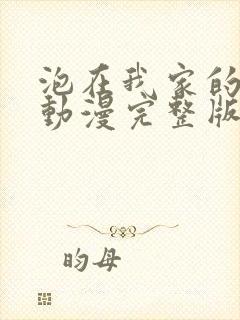 泡在我家的
動漫完整版
昀母